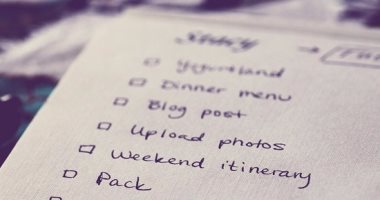 Yogurtland
Dinner menu
Blog post
Upload photos
Weekend itinerary
Pack